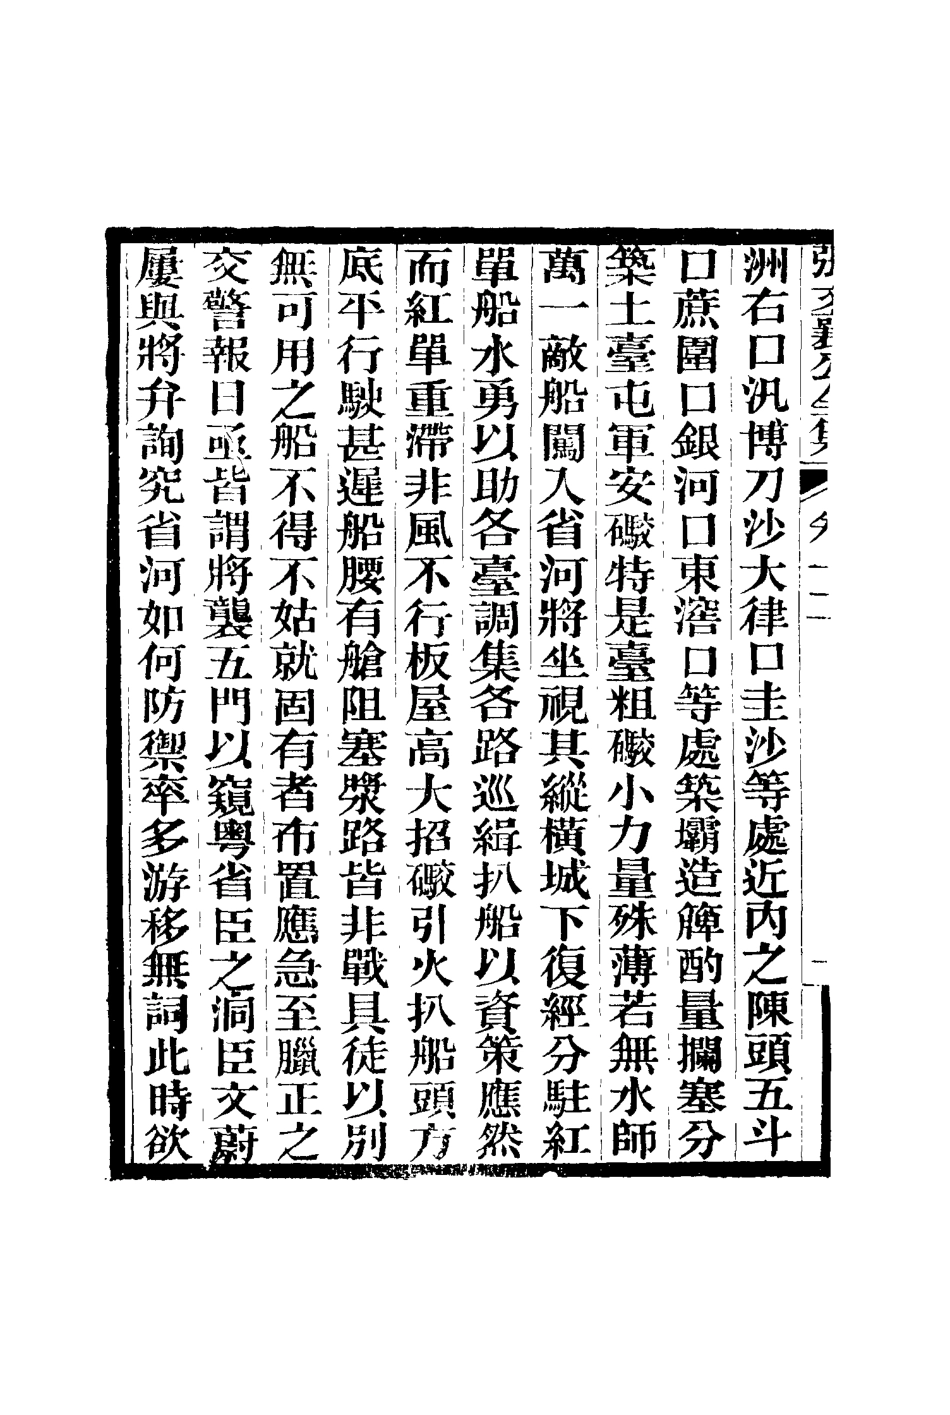 洲右口汛博刀沙大律口圭沙等處近內之陳頭五斗
口蔗圍口銀河口東滘口等處築壩造簰酌量攔塞分
築土臺屯軍安礮特是臺粗礮小力量殊薄若無水師
萬一敵船闖入省河將坐視其縱橫城下復經分駐紅
單船水勇以助各臺調集各路巡緝扒船以資策應然
而紅單重滯非風不行板屋高大招礮引火扒船頭方
底平行駛甚遲船腰有艙阻塞槳路皆非戰具徒以別
無可用之船不得不姑就固有者布置應急至臘正之
交警報日亟皆謂將襲五門以窺粵省臣之洞臣文蔚
屢與將弁詢究省河如何防禦率多游移無詞此時欲